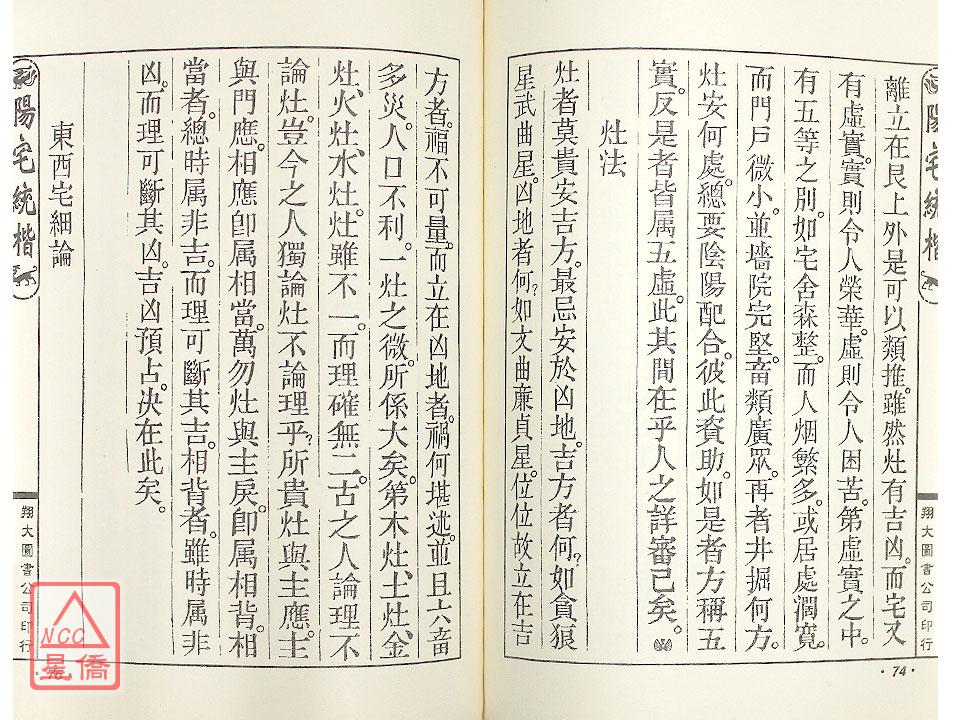 陽宅統楷
離立在艮上外是可以類推。雖然灶有吉凶。而宅又
有虛實。實則令人榮華。虛則令人困苦。第虛實之中。
有五等之別。如宅舍森整。而人烟繁多。或居處濶寬。
而門戶微小。並墻院完堅。畜類廣眾。再者井掘何方。
灶安何處。總要陰陽配合。彼此資助。如是者方稱五
實。反是者皆属五虛。此其間在乎人之詳審己矣。
灶法
灶者莫貴安吉方。最忌安於凶地。吉方者何?如貪狼
星武曲星。凶地者何?如文曲廉貞星。位位故立在吉
翔大圖書公司印行
·74·
方者。福不可量。而立在凶地者。禍何堪述。並且六畜
多災。人口不利。一灶之微。所係大矣。第木灶、土灶、金
灶、火灶、水灶。灶雖不一。而理確無二。古之人論理不
論灶。豈今之人獨論灶不論理乎?所貴灶與主應。主
與門應。相應卽属相當。萬勿灶與主戾。卽属相背。相
當者。總時属非吉。而理可斷其吉。相背者。雖時属非
凶。而理可斷其凶。吉凶預占。决在此矣。
東西宅細論
陽宅統楷
翔大圖書公司印行
·75·
NCC
星僑